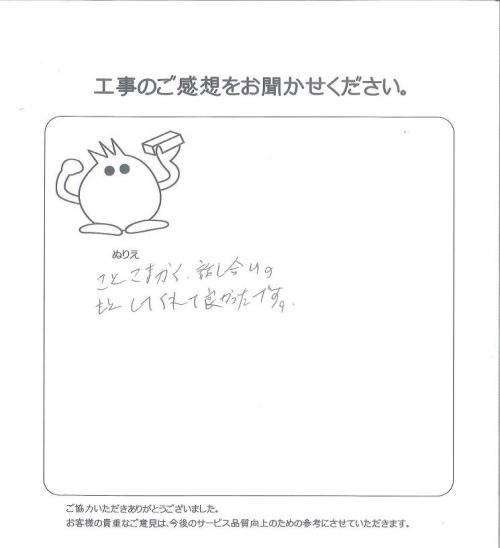 工事のご感想をお聞かせください。
ぬりえ
ことこまかく、話し合いの
もと してくれて良かったです。
ご協力いただきありがとうございました。
お客様の貴重なご意見は、今後のサービス品質向上のための参考にさせていただきます。